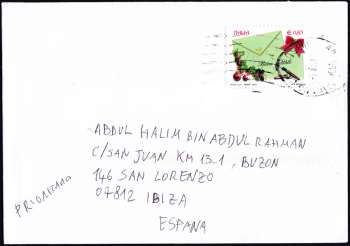 ITALIA € 0,65
ABDUL HALIM BIN ABDUL RAHMAN
C/SAN JUAN KM 13.1, BUZON
146 SAN LORENZO
07812 IBIZA
ESPANA
PRIORITARIO